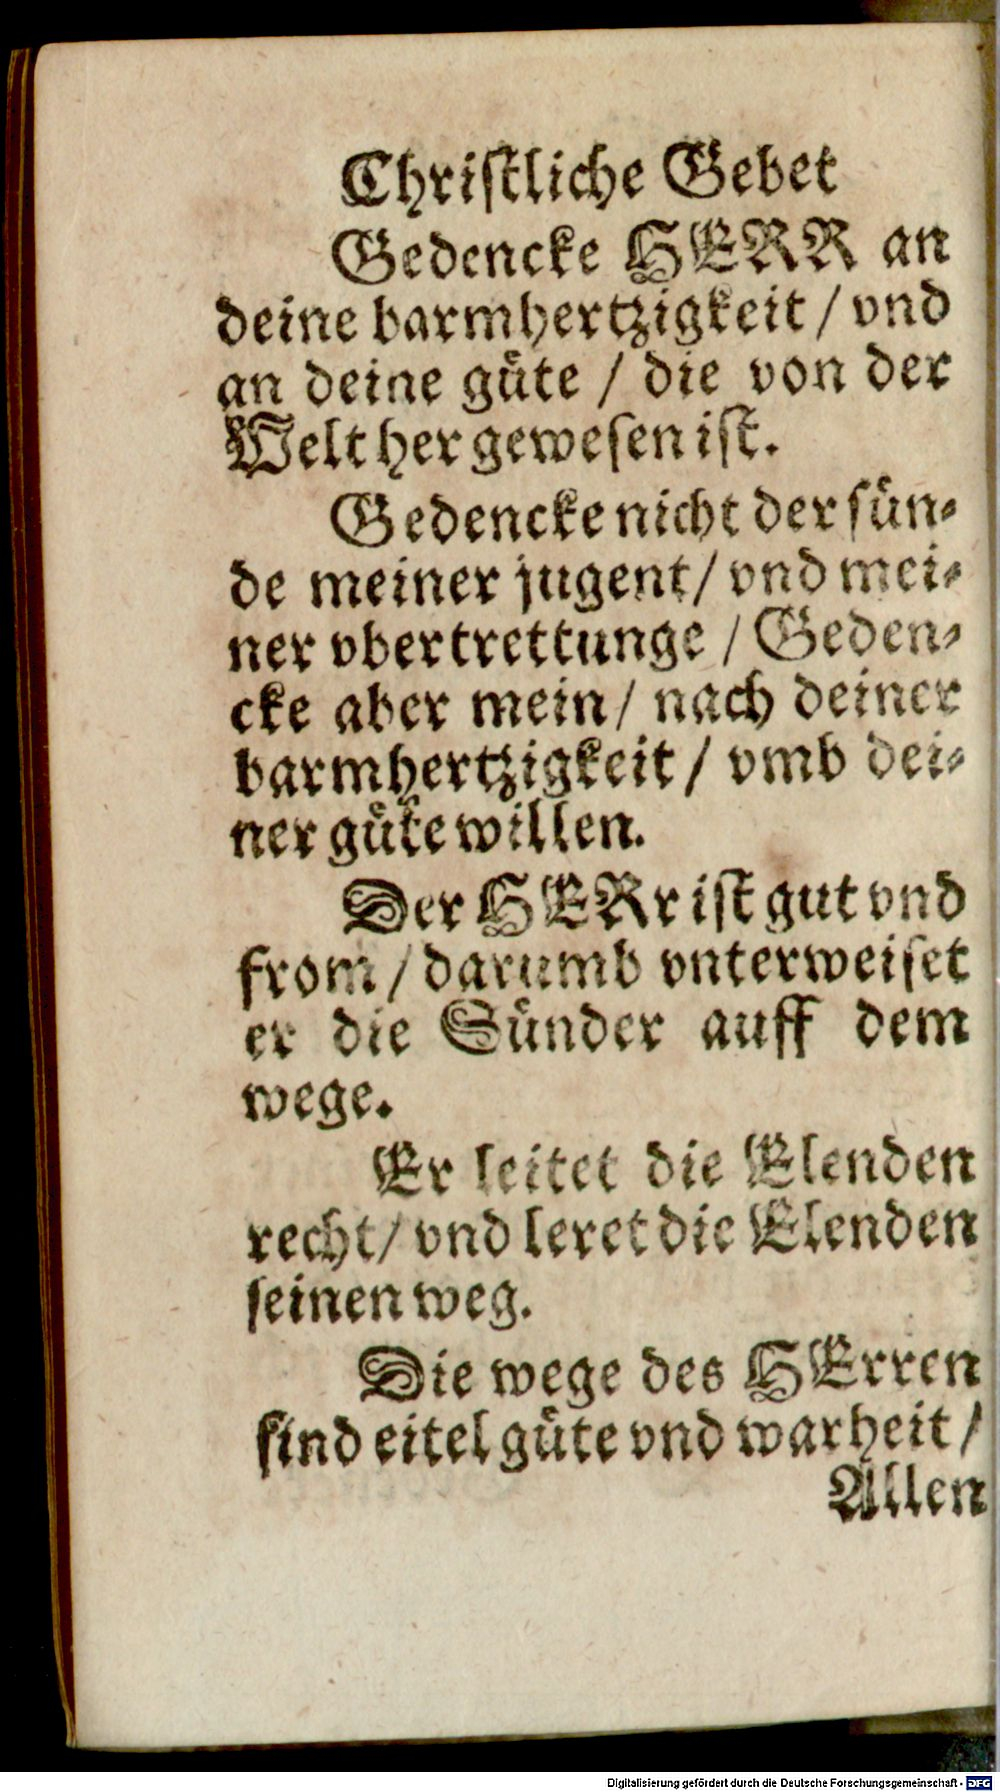 Christliche Gebet
Gedencke HERR an
deine barmhertzigkeit / vnd
an deine guͤte / die von der
Welt her gewesen ist.
Gedencke nicht der suͤn⸗
de meiner jugent / vnd mei⸗
ner vbertrettunge / Geden⸗
cke aber mein / nach deiner
barmhertzigkeit / vmb dei⸗
ner guͤte willen.
Der HERr ist gut vnd
from / darumb vnterweiset
er die Suͤnder auff dem
wege.
Er leitet die Elenden
recht / vnd leret die Elenden
seinen weg.
Die wege des HErren
sind eitel guͤte vnd warheit /
Allen
Digitalisierung gefördert durch die Deutsche Forschungsgemeinschaft - DFG